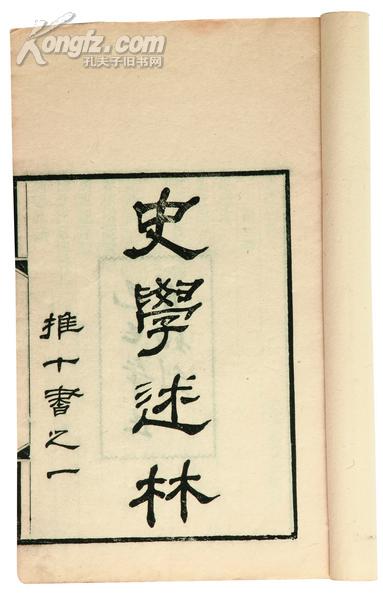 Kongfz.com
孔夫子旧书网
史學述林
推十書之一